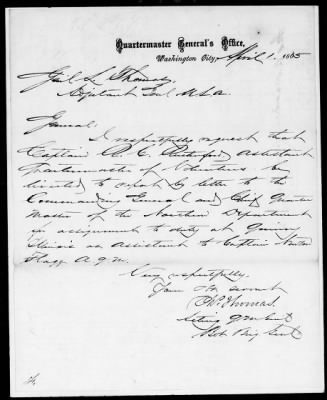 Quartermaster General's Office,
Washington City, April 1. 1865
Genl L. Thomas,
Adjutant Genl U.S.A.
General:
I respectfully request that
Captain R. C. Rutherford Assistant
Quartermaster of Volunteers be
directed to report by letter to the
Commanding General and Chief Quarter
Master of the Northern Department
for assignment to duty at
Illinois as Assistant to Captain Newton
Flagg A.Q.M.
Very respectfully
Your obt servant
Chs Thomas.
Acting Qr Mr Genl
Bvt Brig Genl